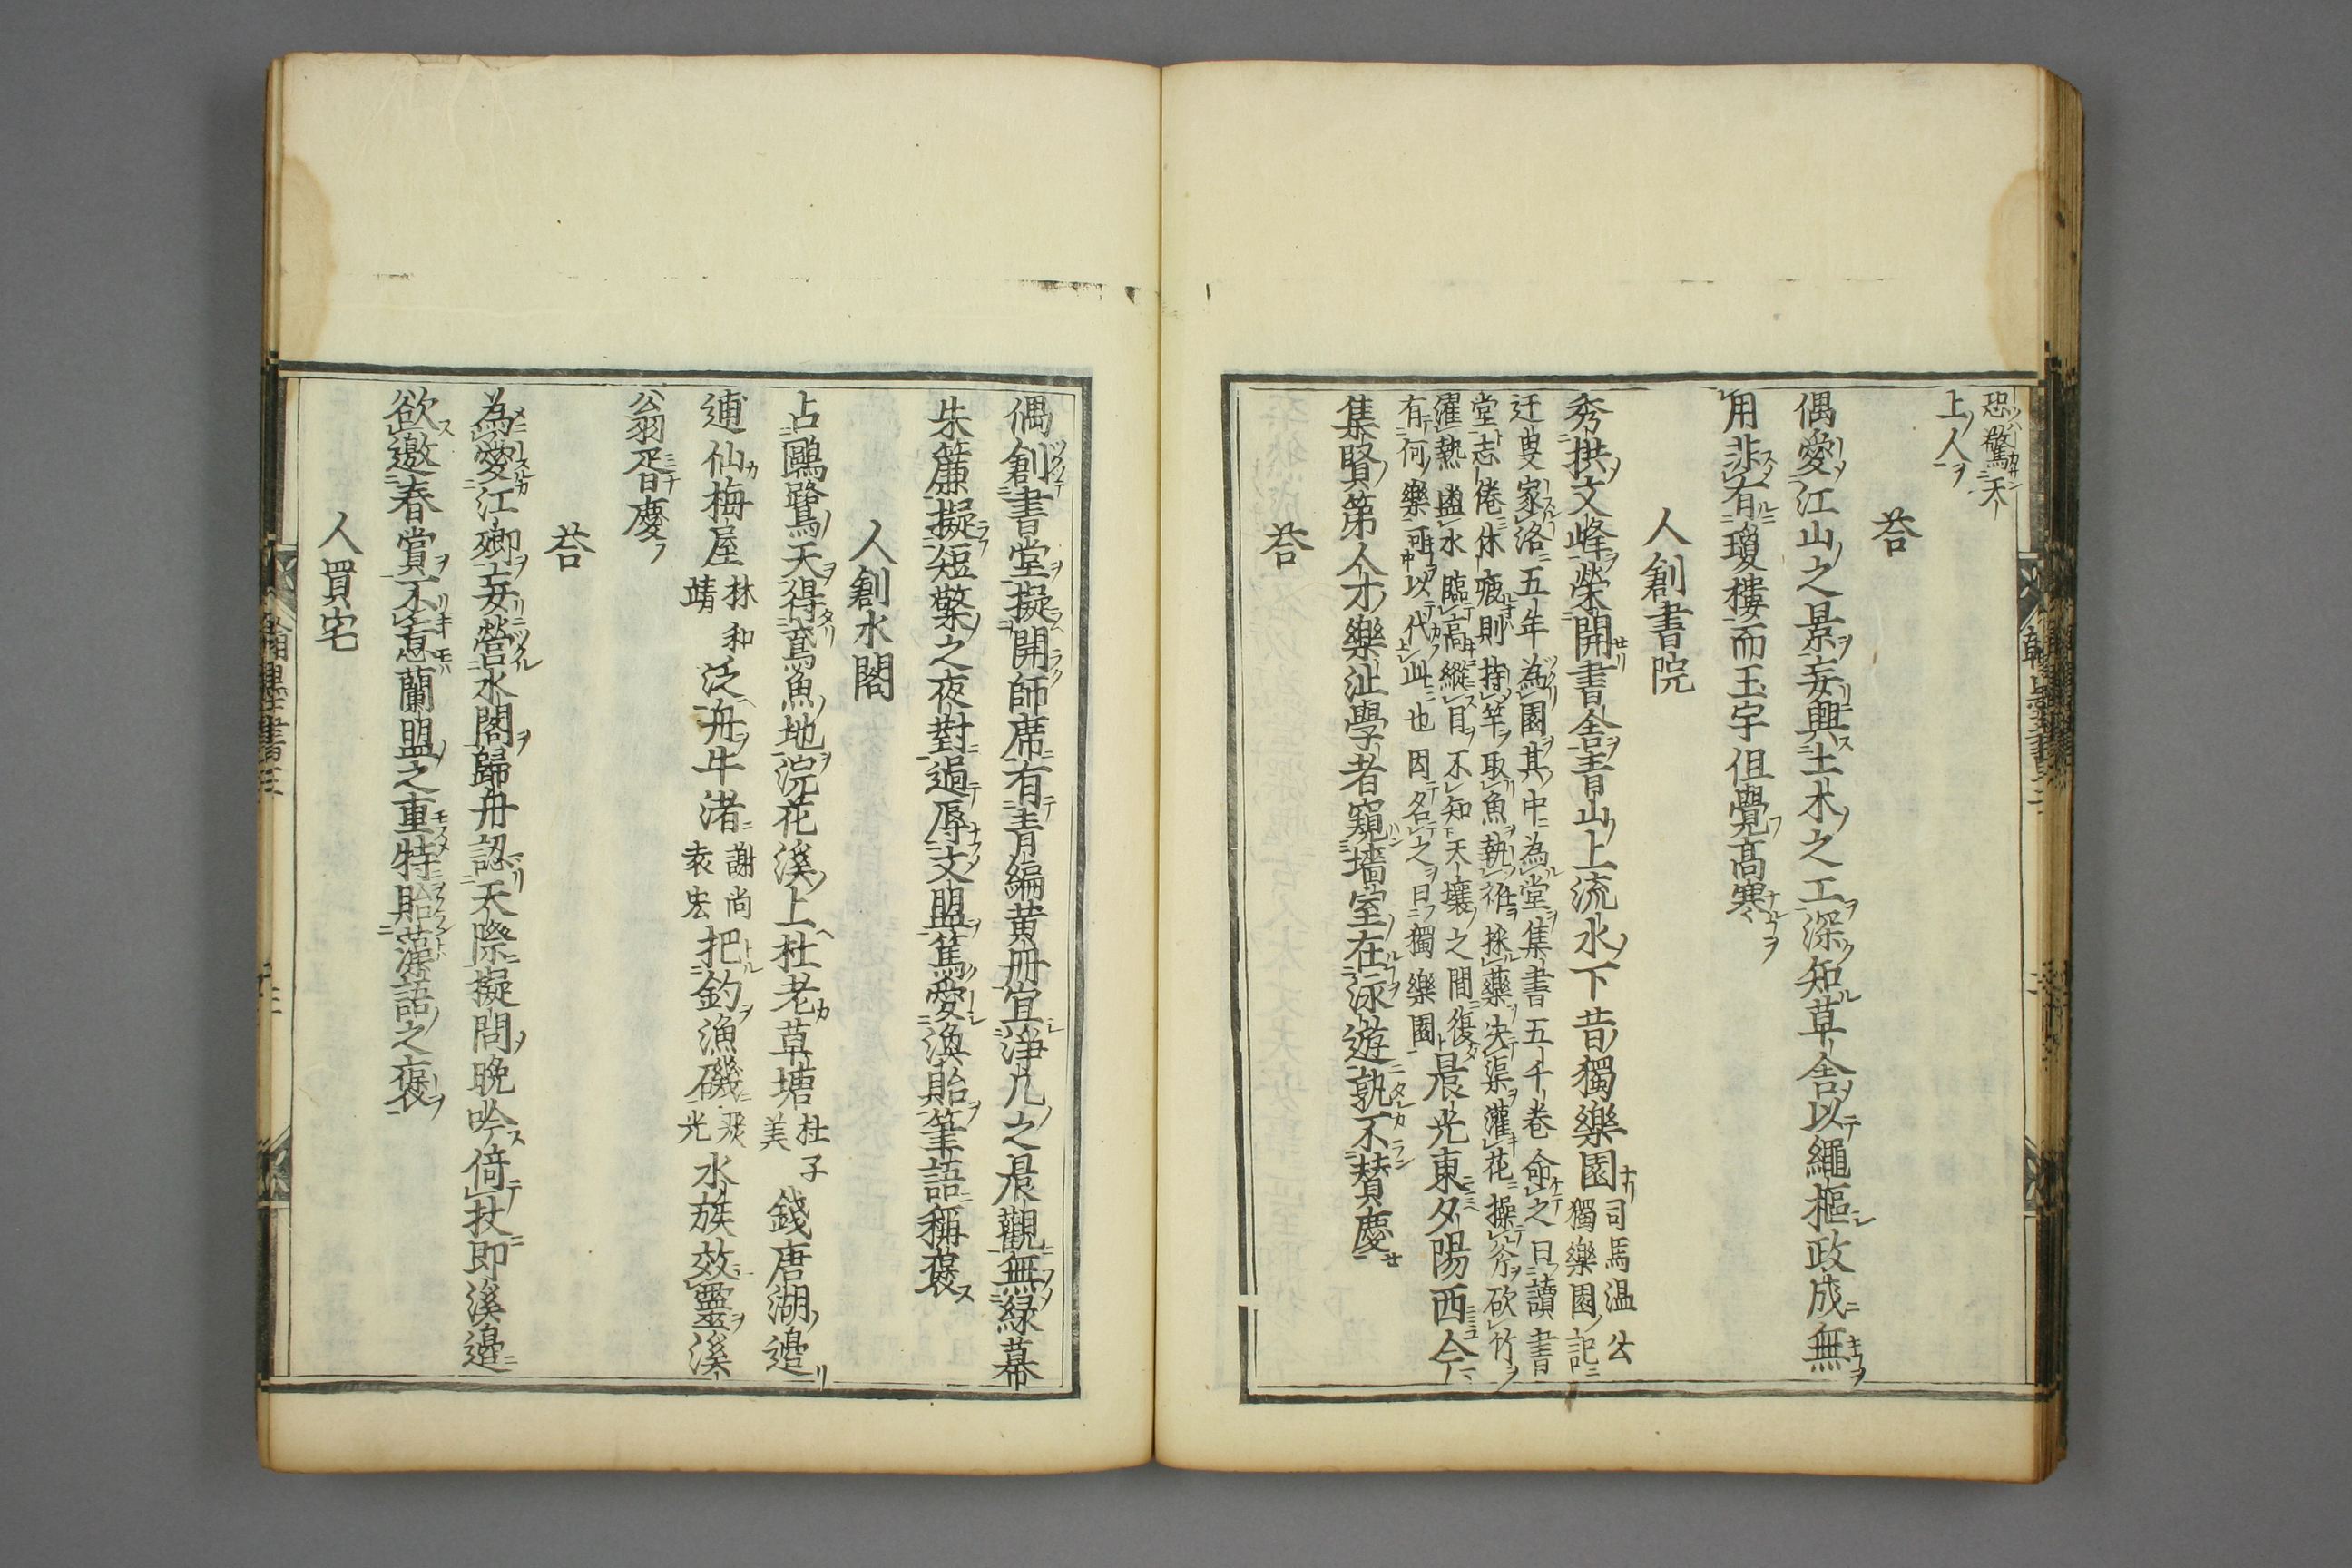 恐驚天
上人
荅
偶愛江山之景妄興土木之工深知草舍以繩樞政成無
用非有瓊樓而玉宇但覺高寒
人創書院
秀拱文峰榮開書舍青山上流水下昔獨樂園司馬温公
獨樂園記
迂叟家洛五年為園其中為堂集書五千卷命之曰讀書
堂志倦休疲則持竿取魚執衽採藥决渠灌花操斧砍竹
濯熱盥水臨高縱目不知天壤之間復
有何樂可以代此也因名之曰獨樂園
晨光東夕陽西今
集賢第人才樂沚學者窺墻室在泳遊孰不賛慶
荅
偶創書堂擬開師席有青編黄册宜淨几之晨觀無緑幕
朱簾擬短檠之夜對過辱文盟篤愛渙貽筆語稱褒
人創水閣
占鷗鷺天得鳶魚地浣花溪上杜老草塘杜子美錢唐湖邉
逋仙梅屋林和靖泛舟牛渚謝尚袁宏把釣漁磯光水族效靈溪
翁胥慶
荅
為愛江鄉妄營水閣歸舟認天際擬問晚吟倚杖即溪邉
欲邀春賞不意蘭盟之重特貽藻語之褒
人買宅
翰墨書三